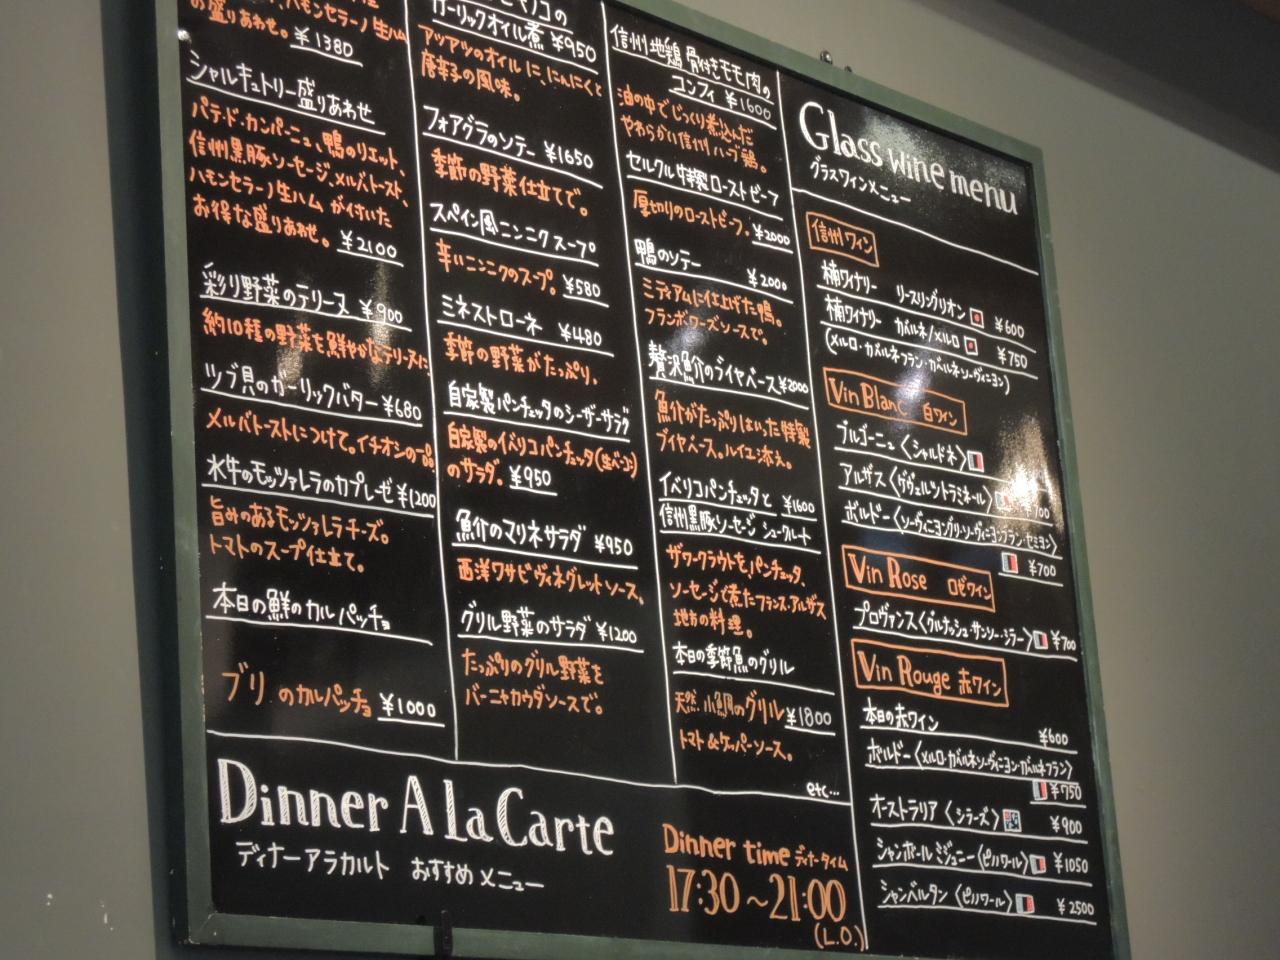 ハモンセラーノ生ハム
の盛りあわせ。¥1380
シャルキュトリー盛りあわせ
パテ・ド・カンパーニュ、鴨のリエット、
信州黒豚ソーセージ、メルバトースト、
ハモンセラーノ生ハム が付いた
お得な盛りあわせ。¥2100
彩り野菜のテリーヌ ¥900
約10種の野菜を鮮やかなテリーヌに
ツブ貝のガーリックバター ¥680
メルバトーストにつけて。イチオシの一品
水牛のモッツァレラのカプレーゼ ¥1200
旨みのあるモッツァレラチーズ。
トマトのスープ仕立て。
本日の鮮魚のカルパッチョ
ブリ のカルパッチョ ¥1000
ガーリックオイル煮 ¥950
アツアツのオイルに、にんにくと
唐辛子の風味。
フォアグラのソテー ¥1650
季節の野菜仕立てで。
スペイン風ニンニクスープ
辛いニンニクのスープ。¥580
ミネストローネ ¥480
季節の野菜がたっぷり。
自家製パンチェッタのシーザーサラダ
自家製のイベリコパンチェッタ(生ベーコン)
のサラダ。¥950
魚介のマリネサラダ ¥950
西洋ワサビヴィネグレットソース。
グリル野菜のサラダ ¥1200
たっぷりのグリル野菜を
バーニャカウダソースで。
信州地鶏 骨付きモモ肉の
コンフィ ¥1600
油の中でじっくり煮込んだ
やわらかい信州ハーブ鶏。
セルクル特製ローストビーフ
厚切りのローストビーフ。¥2000
鴨のソテー ¥2000
ミディアムに仕上げた鴨。
フランボワーズソースで。
贅沢魚介のブイヤベース ¥2000
魚介がたっぷりはいった特製
ブイヤベース。ルイユ添え。
イベリコパンチェッタと ¥1600
信州黒豚ソーセージ シュークルート
ザワークラウトを、パンチェッタ、
ソーセージで煮たフランス・アルザス
地方の料理。
本日の季節魚のグリル
天然 小鯛のグリル ¥1800
トマト&ケッパーソース。
etc...
Glass wine menu
グラスワインメニュー
信州ワイン
楠ワイナリー リースリングリオン ¥600
楠ワイナリー カベルネ/メルロ ¥750
(メルロ・カベルネフラン・カベルネソーヴィニヨン)
Vin Blanc 白ワイン
ブルゴーニュ〈シャルドネ〉
アルザス〈ゲヴェルツトラミネール〉 ¥700
ボルドー〈ソーヴィニヨングリ・ソーヴィニヨンブラン・セミヨン〉
¥700
Vin Rose ロゼワイン
プロヴァンス〈グルナッシュ・サンソー・シラー〉 ¥700
Vin Rouge 赤ワイン
本日の赤ワイン ¥600
ボルドー〈メルロ・カベルネソーヴィニヨン・カベルネフラン〉
¥750
オーストラリア〈シラーズ〉 ¥900
シャンボールミュジニー〈ピノノワール〉 ¥1050
シャンベルタン〈ピノノワール〉 ¥2500
Dinner A la Carte
ディナーアラカルト おすすめメニュー
Dinner time ディナータイム
17:30~21:00
(L.O.)